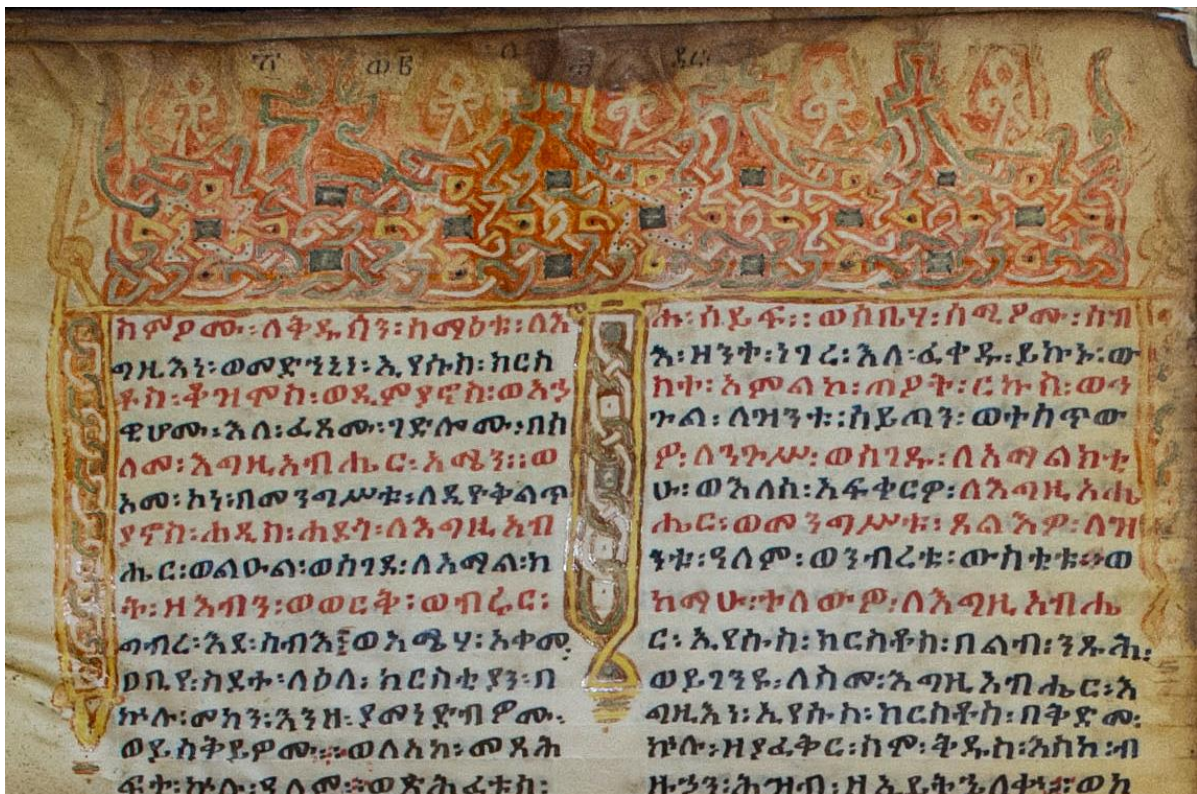 ስምዖሙ፡ ለቅዱሳን፡ ሰማዕቱ፡ ለእ
ግዚእነ፡ ወመድኀኒነ፡ ኢየሱስ፡ ክርስ
ቶስ፡ ቆዝሞስ፡ ወዲምያኖስ፡ ወአኃ
ዊሆሙ፡ እለ፡ ፈጸሙ፡ ገድሎሙ፡ በስ
ለመ፡ እግዚአብሔር፡ አሜን። ወ
አመ፡ ኮነ፡ በመንግሥቱ፡ ለዲዮቅልጥ
ያኖስ፡ ሐዲስ፡ ሐደጎ፡ ለእግዚአብ
ሔር፡ ወልዑል፡ ወሰገደ፡ ለአማል፡ ክ
ት፡ ዘእብን፡ ወወርቅ፡ ወብሩር፡
ግብረ፡ እደ፡ ሰብእ፤ ወአሜሃ፡ አቀመ፡
ዐቢየ፡ ስደተ፡ ላዕለ፡ ክርስቲያን፡ በ
ኵሉ፡ መካን፡ እንዘ፡ ያመነድብዎሙ፡
ወይስቅይዎሙ። ወለአከ፡ መጻሕ
ፍተ፡ ኵሉ፡ ዓለመ። ወጽሕፈቱሰ፡
ሑ፡ ሰይፍ። ወሶቤሃ፡ ሰሚዖሙ፡ ሰብ
እ፡ ዘንተ፡ ነገረ፡ እለ፡ ፈቀዱ፡ ይኩኑ፡ ው
ስተ፡ አምልኮ፡ ጣዖት፡ ርኩስ፡ ወን
ጉል፡ ለዝንቱ፡ ሰይጣን፡ ወተሰጥው
ዎ፡ ለንጉሥ፡ ወሰገዱ፡ ለአማልክቲ
ሁ፡ ወእለሰ፡ አፍቀርዎ፡ ለእግዚአብ
ሔር፡ ወመንግሥቱ፡ ጸልእዎ፡ ለዝ
ንቱ፡ ዓለም፡ ወንብረቱ፡ ውስቲቱ። ወ
ከማሁ፡ ተለውዎ፡ ለእግዚአብሔ
ር፡ ኢየሱስ፡ ክርስቶስ፡ በልብ፡ ንጹሕ፡
ወይገንዩ፡ ለስመ፡ እግዚአብሔር፡ እ
ግዚእነ፡ ኢየሱስ፡ ክርስቶስ፡ በቅድመ፡
ኵሉ፡ ዘያፈቅር፡ ስሞ፡ ቅዱስ፡ እስከ፡ ብ